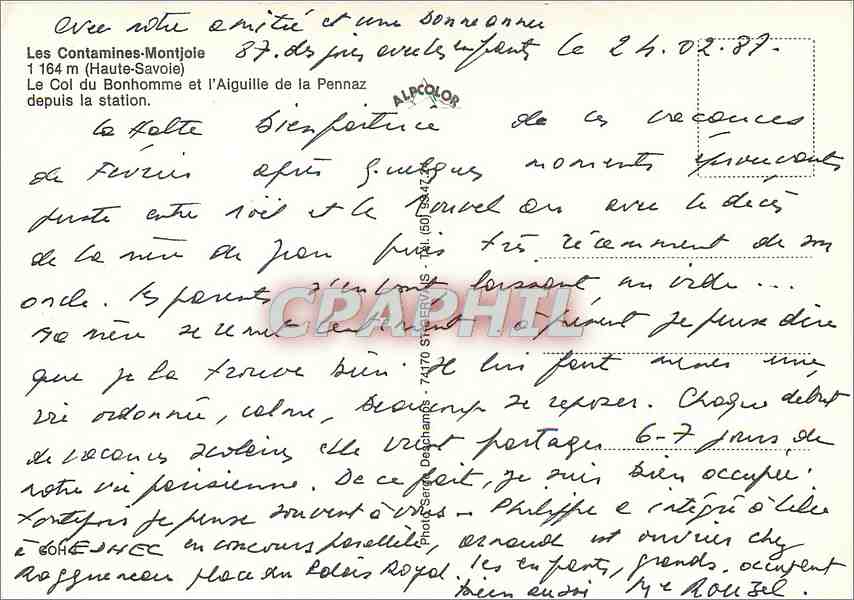 avec notre amitié et une bonne année
87. des joies avec les enfants le 24.02.87.
Les Contamines-Montjoie
1 164 m (Haute-Savoie)
Le Col du Bonhomme et l'Aiguille de la Pennaz
depuis la station.
ALPCOLOR
la Halte bienfaitrice de ces vacances
de Février après quelques moments éprouvants
juste entre Noël et le Nouvel an avec le décès
de la mère de Jean puis très récemment de son
oncle. les parents s'en vont laissant un vide...
ma mère se remet lentement. à présent je peux dire
que je la trouve bien. Il lui faut mener une
vie ordonnée, calme, beaucoup se reposer. Chaque début
de vacances scolaires elle vient partager 6-7 jours de
notre vie parisienne. De ce fait, je suis bien occupée!
toutefois je pense souvent à vous - Philippe a intégré à Lille
à EDHEC en concours parallèle, arnaud est ouvrier chez
Ragueneau place du Palais Royal. les enfants, grands, occupent
bien aussi Rouzel.
Photo Serge Deschamps - 74170 ST GERVAIS - Tél. (50) 93.47.2
CPAPHIL